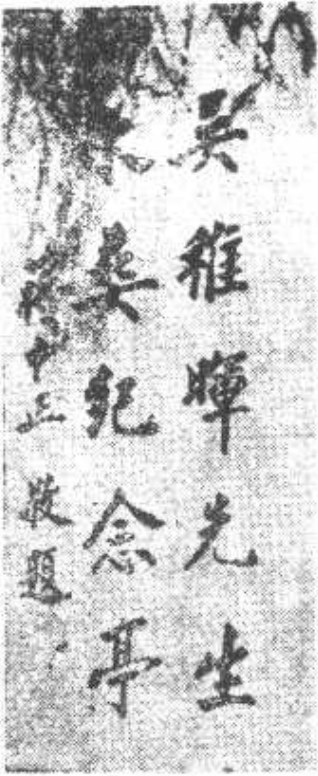 吳稚暉先生
葬紀念亭
蔣中正 敬題